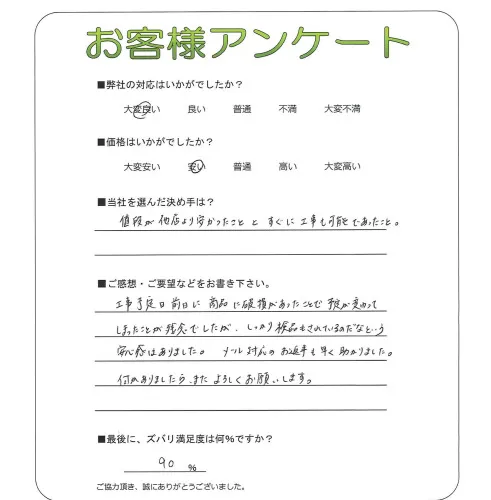 お客様アンケート
■弊社の対応はいかがでしたか？
大変良い 良い 普通 不満 大変不満
■価格はいかがでしたか？
大変安い 安い 普通 高い 大変高い
■当社を選んだ決め手は？
値段が他店より安かったこと と すぐに工事も可能であったこと。
■ご感想・ご要望などをお書き下さい。
工事予定日前日に商品に破損があったことで予定が変わって
しまったことが残念でしたが、しっかり検品もされているのだなという
安心感はありました。メール対応のお返事も早く助かりました。
何かありましたら、また よろしくお願いします。
■最後に、ズバリ満足度は何%ですか？
90 %
ご協力頂き、誠にありがとうございました。